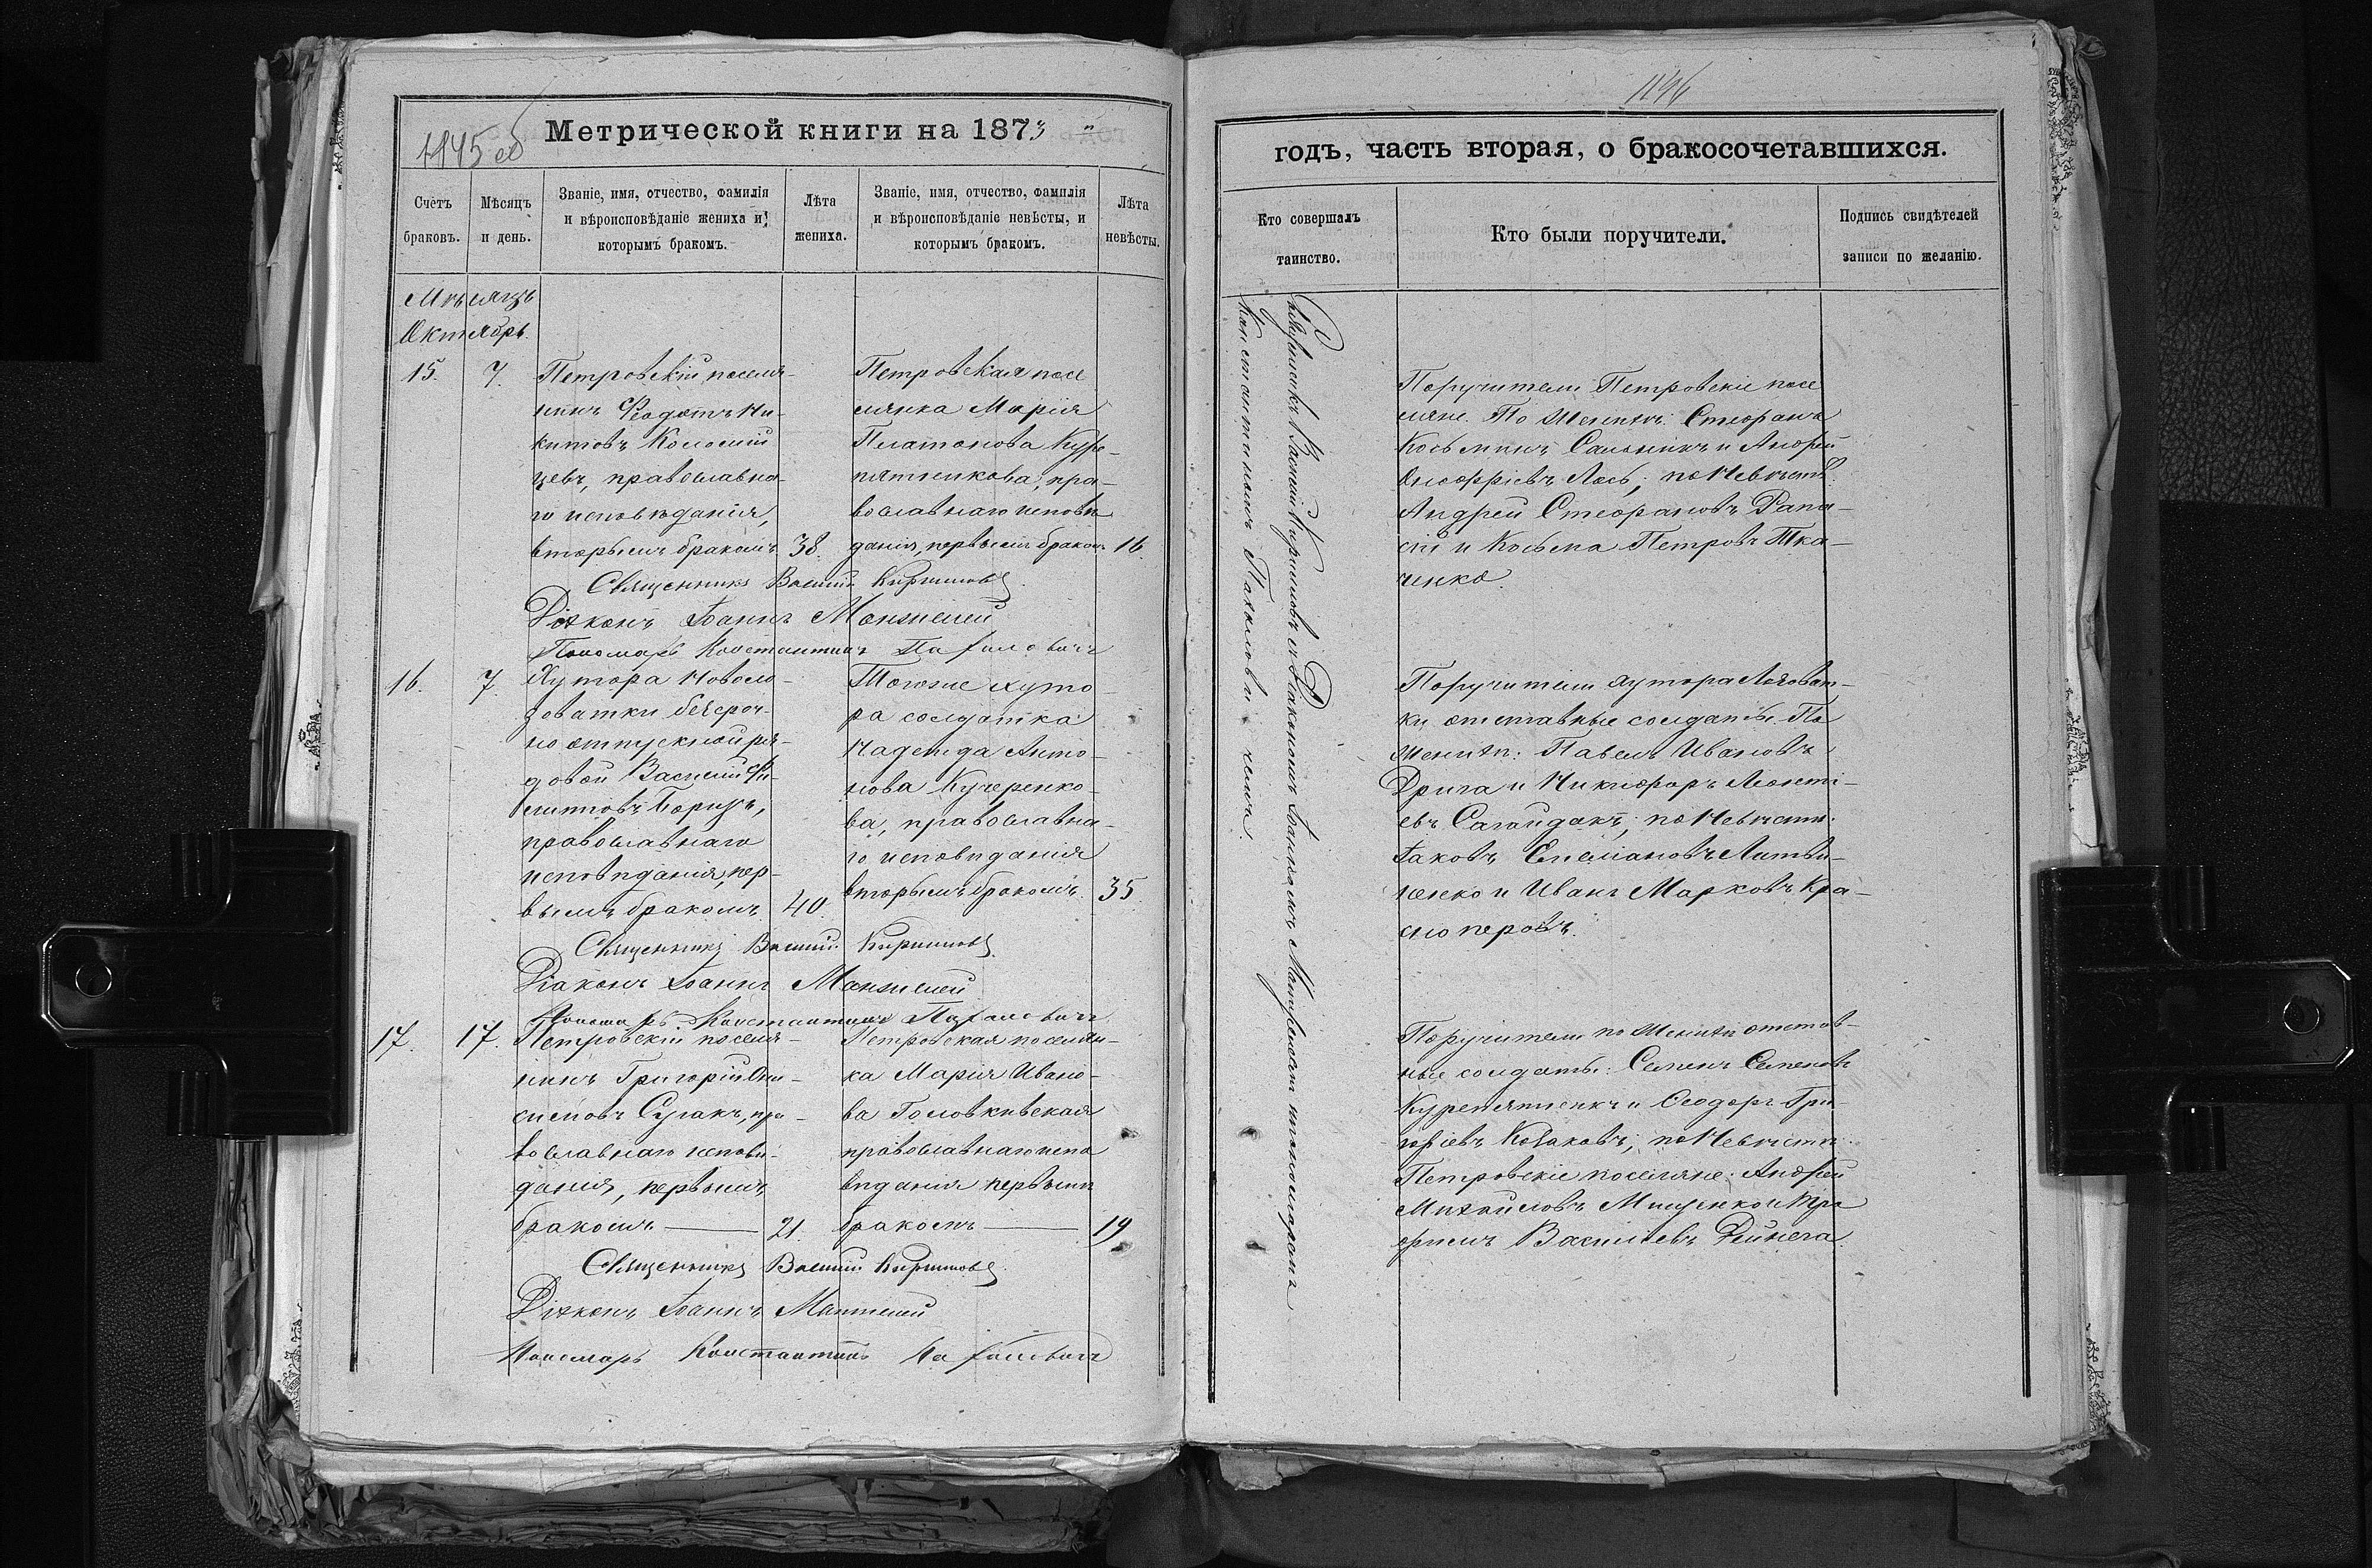 1145 об
Метрической книги на 1873
Счетъ браковъ.
Мѣсяцъ и день.
Званіе, имя, отчество, фамилія и вѣроисповѣданіе жениха и которымъ бракомъ.
Лѣта жениха.
Званіе, имя, отчество, фамилія и вѣроисповѣданіе невѣсты, и которымъ бракомъ.
Лѣта невѣсты.
Мѣсяцъ
Октябрь.
15. 7.
Петровскій поселя-
нинъ Феодотъ Ни-
китовъ Коломій
цевъ, православна-
го исповѣданія,
вторымъ бракомъ 38.
Петровская посе
лянка Марія
Платонова Куре-
пятникова, пра-
вославнаго исповѣ
данія, первымъ бракомъ 16.
Священникъ Василій Кирилловъ
Діаконъ Іоаннъ Манжелей
Пономарь Константинъ
16. 7.
Хутора Новоло-
зоватки безсроч-
но отпускной ря-
довой Василій Фи-
липповъ
православнаго
исповѣданія, пер-
вымъ бракомъ 40.
Тогоже хуто-
ра солдатка
Надежда Анто-
нова Кучеренко-
ва, православна-
го исповѣданія
вторымъ бракомъ 35
Священникъ Василій Кирилловъ
Діаконъ Іоаннъ Манжелей
Пономарь Константинъ
17. 17.
Петровскій поселя-
нинъ Григорій Они-
симовъ Сугакъ, пра-
вославнаго исповѣ-
данія, первымъ
бракомъ — 21.
Петровская поселян-
ка Марія Ивано-
ва Головкивская
православнаго испо
вѣданія первымъ
бракомъ — 19
Священникъ Василій Кирилловъ
Діаконъ Іоаннъ Манжелей
Пономарь Константинъ
1146
годъ, часть вторая, о бракосочетавшихся.
Кто совершалъ таинство.
Кто были поручители.
Подпись свидѣтелей записи по желанію.
Священникъ Василій Кирилловъ съ Діакономъ Іоанномъ Манжелеемъ и пономаремъ
Константиномъ
Поручители Петровскіе посе
ляне. По женихѣ: Стефанъ
Косьминъ Сальникъ и Андрей
Онофріевъ Лось; по Невѣстѣ:
Андрей Стефановъ
и Косьма Петровъ Тка-
ченко.
Поручители хутора Лозоват-
ки отставные солдаты. По
женихѣ: Павелъ Ивановъ
Дрига и Никифоръ Леонті-
евъ Сагайдакъ; по Невѣстѣ:
Іаковъ Емеліановъ Литви-
ненко и Иванъ Марковъ Кра-
сноперовъ.
Поручители по женихѣ отстав-
ные солдаты: Семенъ Семеновъ
Курепятникъ и Феодоръ Гри-
горіевъ Козаковъ; по Невѣстѣ:
Петровскіе поселяне: Андрей
Михайловъ Мищенко и Тро
фимъ Василіевъ Дейнега.